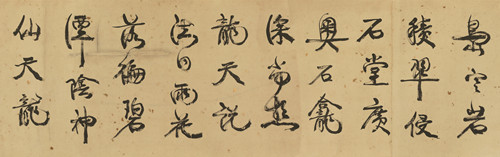 空岩
積翠侵
石堂廣
奥石龕
深尚想
龍天説
法日雨花
落徧碧
潭陰神
仙天龍